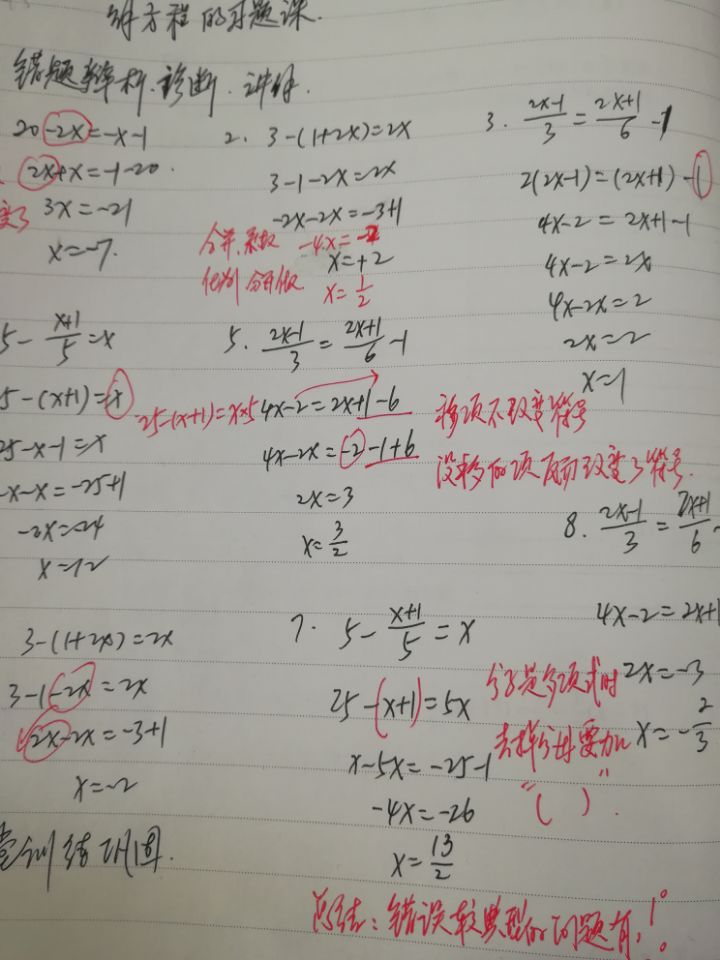 解方程的习题课.
错题辩析.诊断.讲解.
20-2x=-x-1
2x+x=-1-20.
变了
3x=-21
x=-7.
2. 3-(1+2x)=2x
3-1-2x=2x
-2x-2x=-3+1
合并.系数 -4x=-2
x=+2
化为1分开做 x=1/2
3. (2x-1)/3=(2x+1)/6-1
2(2x-1)=(2x+1)-1
4x-2=2x+1-1
4x-2=2x
4x-2x=2
2x=2
x=1
5-(x+1)/5=x
5-(x+1)=x
25-(x+1)=x×5
25-x-1=x
-x-x=-25+1
-2x=-24
x=12
5. (2x-1)/3=(2x+1)/6-1
4x-2=2x+1-6
4x-2x=-2-1+6
2x=3
x=3/2
移项不改变符号
没移的项反而改变了符号.
3-(1+2x)=2x
3-1-2x=2x
2x-2x=-3+1
x=-2
7. 5-(x+1)/5=x
25-(x+1)=5x
x-5x=-25-1
-4x=-26
x=13/2
8. (2x-1)/3=(2x+1)/6-
4x-2=2x+1
2x=-3
x=-2/3
分子是多项式时
去掉分母要加
"( )".
堂训练巩固.
总结:错误较典型的问题有:1°